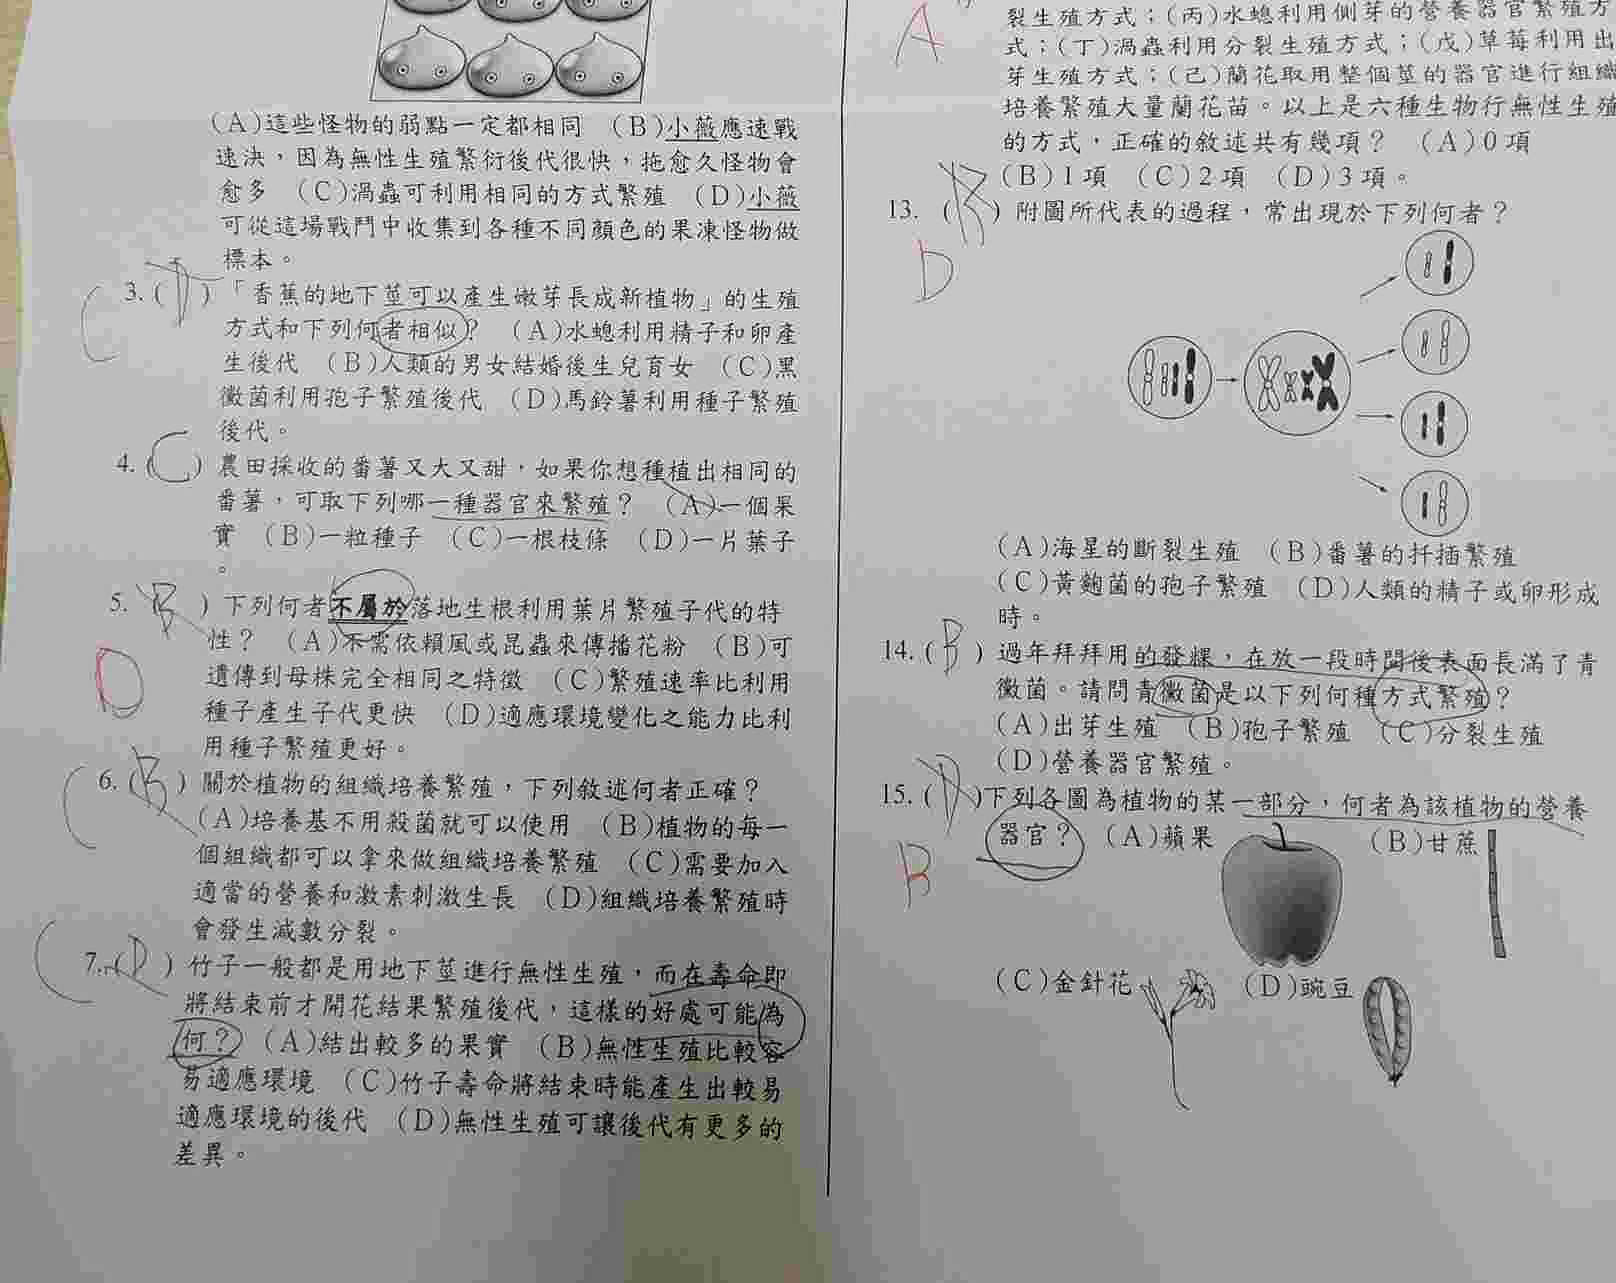 (A)這些怪物的弱點一定都相同 (B)小薇應速戰
速決，因為無性生殖繁衍後代很快，拖愈久怪物會
愈多 (C)渦蟲可利用相同的方式繁殖 (D)小薇
可從這場戰鬥中收集到各種不同顏色的果凍怪物做
標本。
C 3. (D) 「香蕉的地下莖可以產生嫩芽長成新植物」的生殖
方式和下列何者相似? (A)水螅利用精子和卵產
生後代 (B)人類的男女結婚後生兒育女 (C)黑
黴菌利用孢子繁殖後代 (D)馬鈴薯利用種子繁殖
後代。
4. (C) 農田採收的番薯又大又甜，如果你想種植出相同的
番薯，可取下列哪一種器官來繁殖? (A)一個果
實 (B)一粒種子 (C)一根枝條 (D)一片葉子
。
5. (B) 下列何者不屬於落地生根利用葉片繁殖子代的特
性? (A)不需依賴風或昆蟲來傳播花粉 (B)可
D 遺傳到母株完全相同之特徵 (C)繁殖速率比利用
種子產生子代更快 (D)適應環境變化之能力比利
用種子繁殖更好。
C 6. (B) 關於植物的組織培養繁殖，下列敘述何者正確?
(A)培養基不用殺菌就可以使用 (B)植物的每一
個組織都可以拿來做組織培養繁殖 (C)需要加入
適當的營養和激素刺激生長 (D)組織培養繁殖時
會發生減數分裂。
C 7. (D) 竹子一般都是用地下莖進行無性生殖，而在壽命即
將結束前才開花結果繁殖後代，這樣的好處可能為
何? (A)結出較多的果實 (B)無性生殖比較容
易適應環境 (C)竹子壽命將結束時能產生出較易
適應環境的後代 (D)無性生殖可讓後代有更多的
差異。
裂生殖方式；(丙)水螅利用側芽的營養器官繁殖方
A 式；(丁)渦蟲利用分裂生殖方式；(戊)草莓利用出
芽生殖方式；(己)蘭花取用整個莖的器官進行組織
培養繁殖大量蘭花苗。以上是六種生物行無性生殖
的方式，正確的敘述共有幾項? (A)0項
(B)1項 (C)2項 (D)3項。
13. (B) 附圖所代表的過程，常出現於下列何者?
D
(A)海星的斷裂生殖 (B)番薯的扦插繁殖
(C)黃麴菌的孢子繁殖 (D)人類的精子或卵形成
時。
14. (B) 過年拜拜用的發粿，在放一段時間後表面長滿了青
黴菌。請問青黴菌是以下列何種方式繁殖?
(A)出芽生殖 (B)孢子繁殖 (C)分裂生殖
(D)營養器官繁殖。
15. (D)下列各圖為植物的某一部分，何者為該植物的營養
器官? (A)蘋果 (B)甘蔗
B
(C)金針花 (D)豌豆